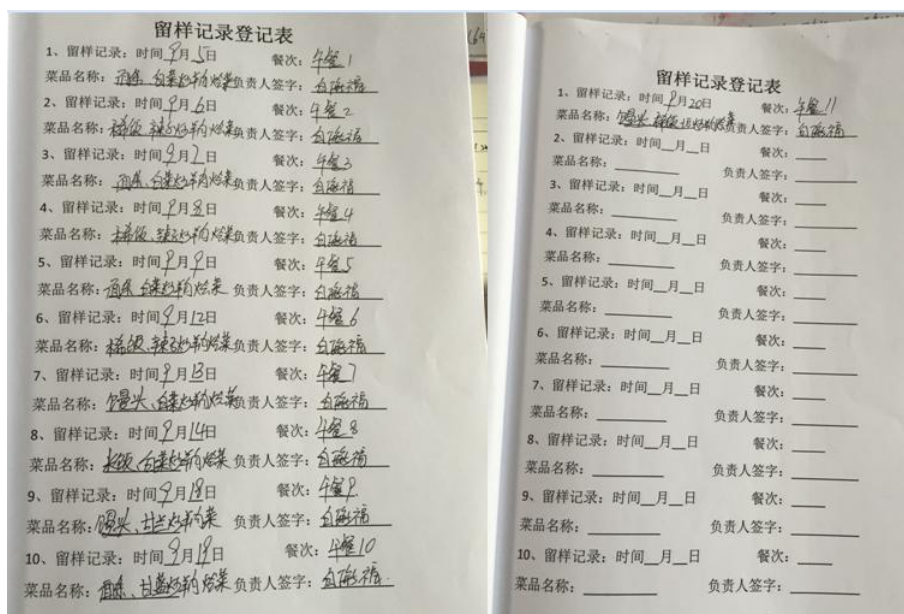 留样记录登记表
1、留样记录：时间9月5日 餐次：午餐1
菜品名称：面条、白菜炒羊肉烩菜 负责人签字：白
2、留样记录：时间9月6日 餐次：午餐2
菜品名称：稀饭、辣子炒羊肉烩菜 负责人签字：白
3、留样记录：时间9月7日 餐次：午餐3
菜品名称：面条、白菜炒羊肉烩菜 负责人签字：白
4、留样记录：时间9月8日 餐次：午餐4
菜品名称：稀饭、辣子炒羊肉烩菜 负责人签字：白
5、留样记录：时间9月9日 餐次：午餐5
菜品名称：面条、白菜炒羊肉烩菜 负责人签字：白
6、留样记录：时间9月12日 餐次：午餐6
菜品名称：稀饭、辣子炒羊肉烩菜 负责人签字：白
7、留样记录：时间9月13日 餐次：午餐7
菜品名称：馒头、白菜炒羊肉烩菜 负责人签字：白
8、留样记录：时间9月14日 餐次：午餐8
菜品名称：米饭、白菜炒羊肉烩菜 负责人签字：白
9、留样记录：时间9月18日 餐次：午餐9
菜品名称：馒头、炒羊肉菜 负责人签字：白
10、留样记录：时间9月19日 餐次：午餐10
菜品名称：面条、炒羊肉烩菜 负责人签字：白
留样记录登记表
1、留样记录：时间9月20日 餐次：午餐11
菜品名称：馒头、稀饭 负责人签字：白
2、留样记录：时间__月__日 餐次：____
菜品名称：________ 负责人签字：________
3、留样记录：时间__月__日 餐次：____
菜品名称：________ 负责人签字：________
4、留样记录：时间__月__日 餐次：____
菜品名称：________ 负责人签字：________
5、留样记录：时间__月__日 餐次：____
菜品名称：________ 负责人签字：________
6、留样记录：时间__月__日 餐次：____
菜品名称：________ 负责人签字：________
7、留样记录：时间__月__日 餐次：____
菜品名称：________ 负责人签字：________
8、留样记录：时间__月__日 餐次：____
菜品名称：________ 负责人签字：________
9、留样记录：时间__月__日 餐次：____
菜品名称：________ 负责人签字：________
10、留样记录：时间__月__日 餐次：____
菜品名称：________ 负责人签字：________